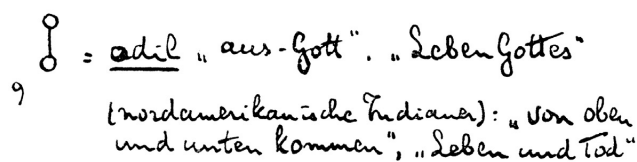 = odil „aus-Gott“. „Leben Gottes“
9
(nordamerikanische Indianer): „von oben
und unten kommen“, „Leben und Tod“